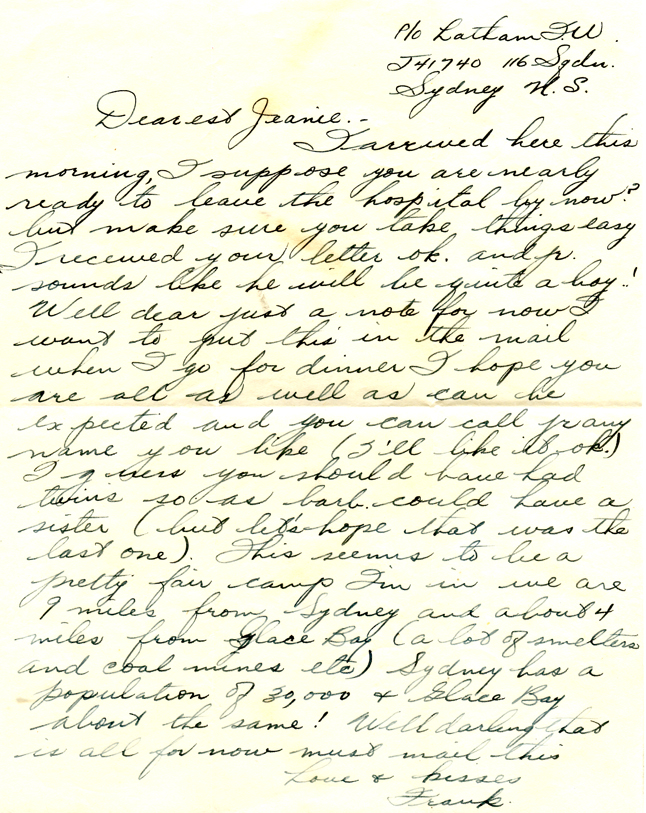 P/o Latham F.W.
J41740 116 Sqdn.
Sydney N.S.
Dearest Jeanie.-
I arrived here this
morning, I suppose you are nearly
ready to leave the hospital by now?
but make sure you take things easy
I received your letter ok. and jr.
sounds like he will be quite a boy!
Well dear just a note for now I
want to put this in the mail
when I go for dinner I hope you
are all as well as can be
expected and you can call jr any
name you like (I'll like it ok.)
I guess you should have had
twins so as barb. could have a
sister (but let's hope that was the
last one). This seems to be a
pretty fair camp I'm in we are
9 miles from Sydney and about 4
miles from Glace Bay (a lot of smelters
and coal mines etc) Sydney has a
population of 30,000 & Glace Bay
about the same! Well darling that
is all for now must mail this
Love & kisses
Frank.